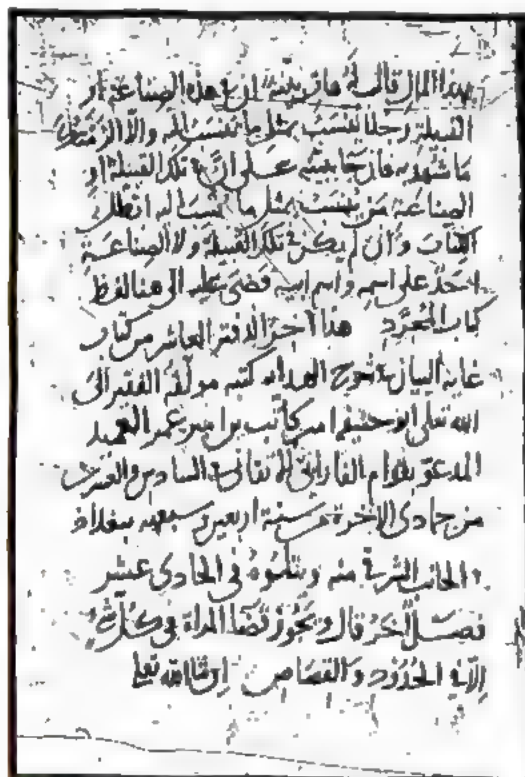 بهذا المال قال له هات بينة ان في هذه الصناعة او
القبيلة رجلا ينسب بمثل ما تنسب اليه والا الزمتك
ما شهد به فان جا ببينة على ان في تلك القبيلة او
الصناعة من ينسب بمثل ما ينسب اليه ابطل
الكتاب وان لم يكن في تلك القبيلة ولا الصناعة
احد على اسمه واسم ابيه قضى عليه الى هنا لفظ
كتاب المجرد هذا آخر الدفتر العاشر من كتاب
غاية البيان في شرح الهداية كتبه مولفه الفقير الى
الله تعالى ابو حنيفة امير كاتب بن امير عمر العميد
المدعو بقوام الفارابي الاتقاني في السادس والعشرين
من جمادى الاخرة من سنة اربعين وسبعمه ببغداد
في الجانب الشرقي منه ويتلوه في الحادي عشر
فصل آخر قال ويجوز قضا المراة في كل شي
الا في الحدود والقصاص ان شا الله تعالى